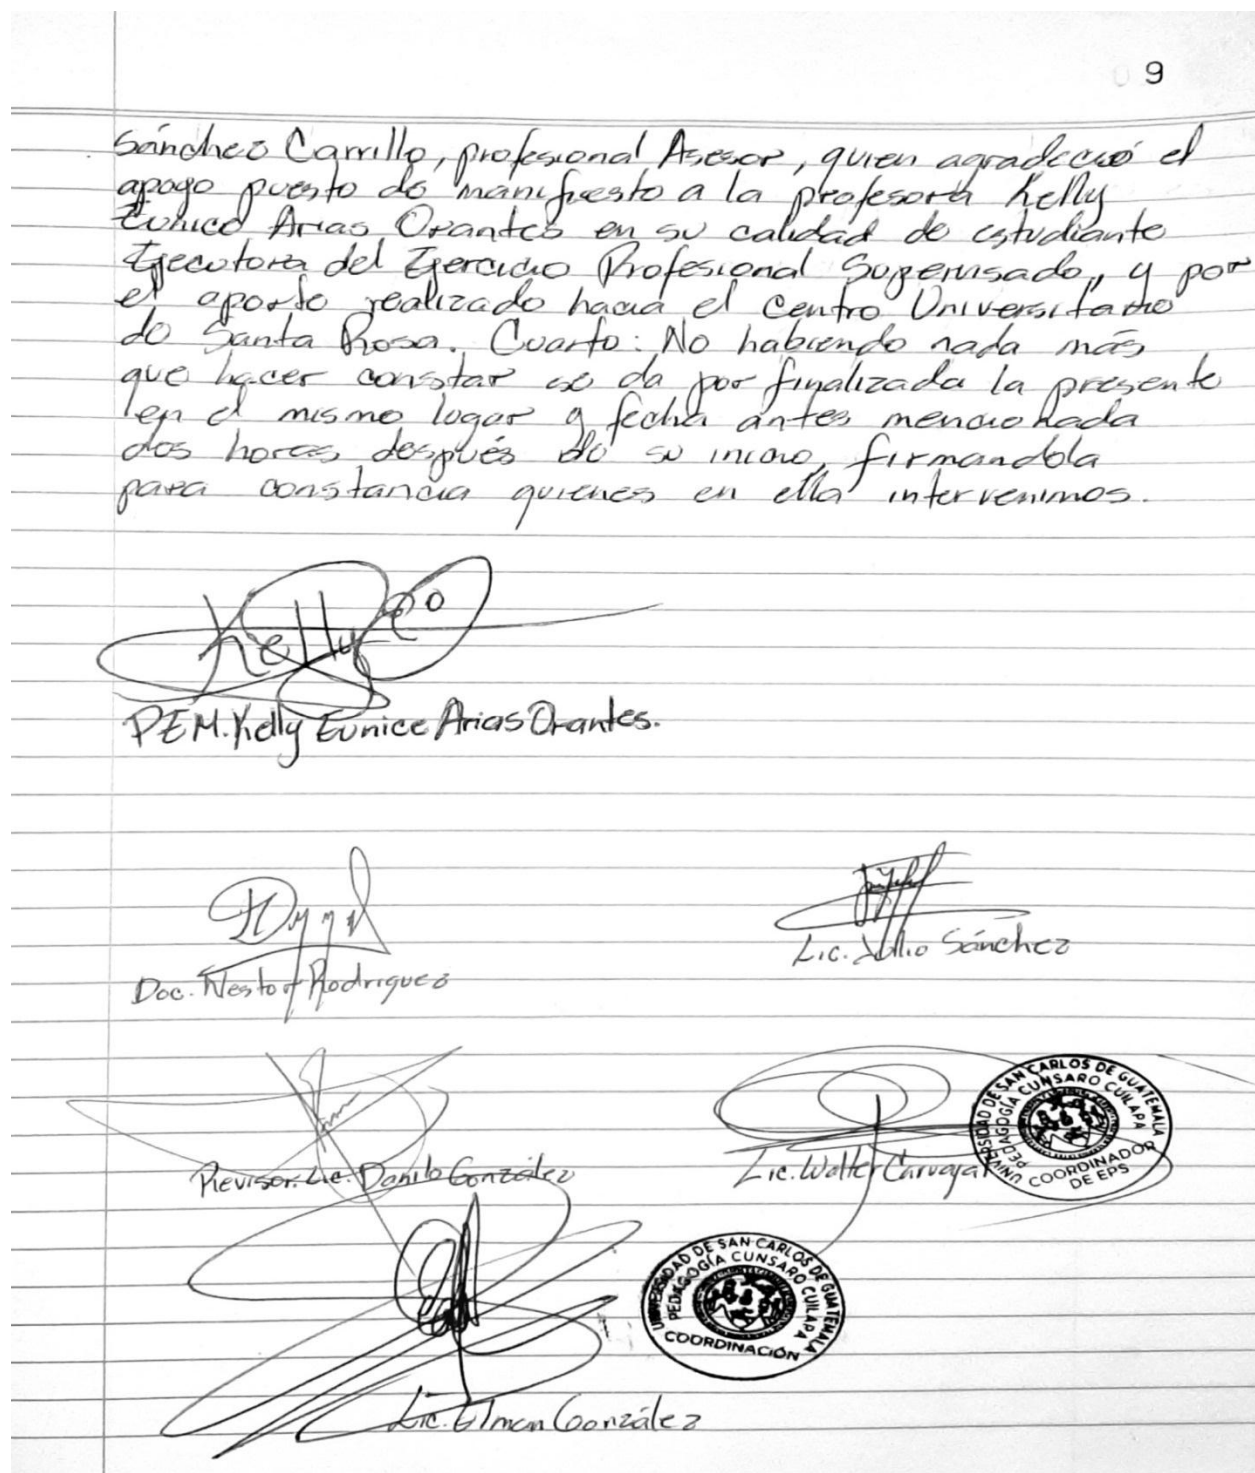 9
Sánchez Carrillo, profesional Asesor, quien agradeció el
apoyo puesto de manifiesto a la profesora Kelly
Eunice Arias Orantes en su calidad de estudiante
Ejecutora del Ejercicio Profesional Supervisado, y por
el aporte realizado hacia el Centro Universitario
de Santa Rosa. Cuarto: No habiendo nada más
que hacer constar se da por finalizada la presente
en el mismo lugar y fecha antes mencionada
dos horas después de su inicio, firmandola
para constancia quienes en ella intervenimos.
Kelly
PEM. Kelly Eunice Arias Orantes.
Doc. Nestor Rodriguez
Lic. Julio Sánchez
Revisor. Lic. Danilo González
Lic. Walter Carvajal
UNIVERSIDAD DE SAN CARLOS DE GUATEMALA
PEDAGOGÍA CUNSARO CUILAPA
COORDINADOR
DE EPS
UNIVERSIDAD DE SAN CARLOS DE GUATEMALA
PEDAGOGÍA CUNSARO CUILAPA
COORDINACIÓN
Lic. González